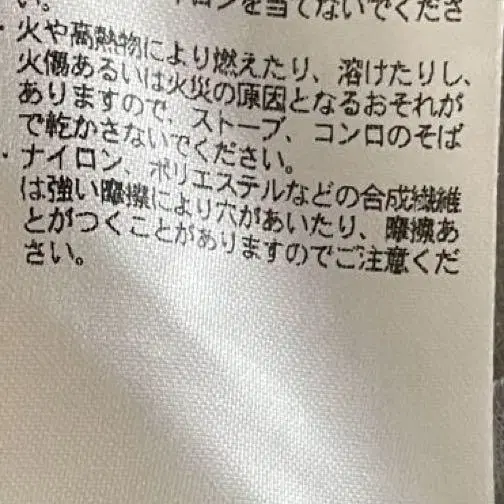 い。
ロンを当てないでくださ
・火や高熱物により燃えたり、溶けたりし、
火傷あるいは火災の原因となるおそれが
ありますので、ストーブ、コンロのそば
で乾かさないでください。
・ナイロン、ポリエステルなどの合成繊維
は強い摩擦により穴があいたり、摩擦あ
とがつくことがありますのでご注意くだ
さい。